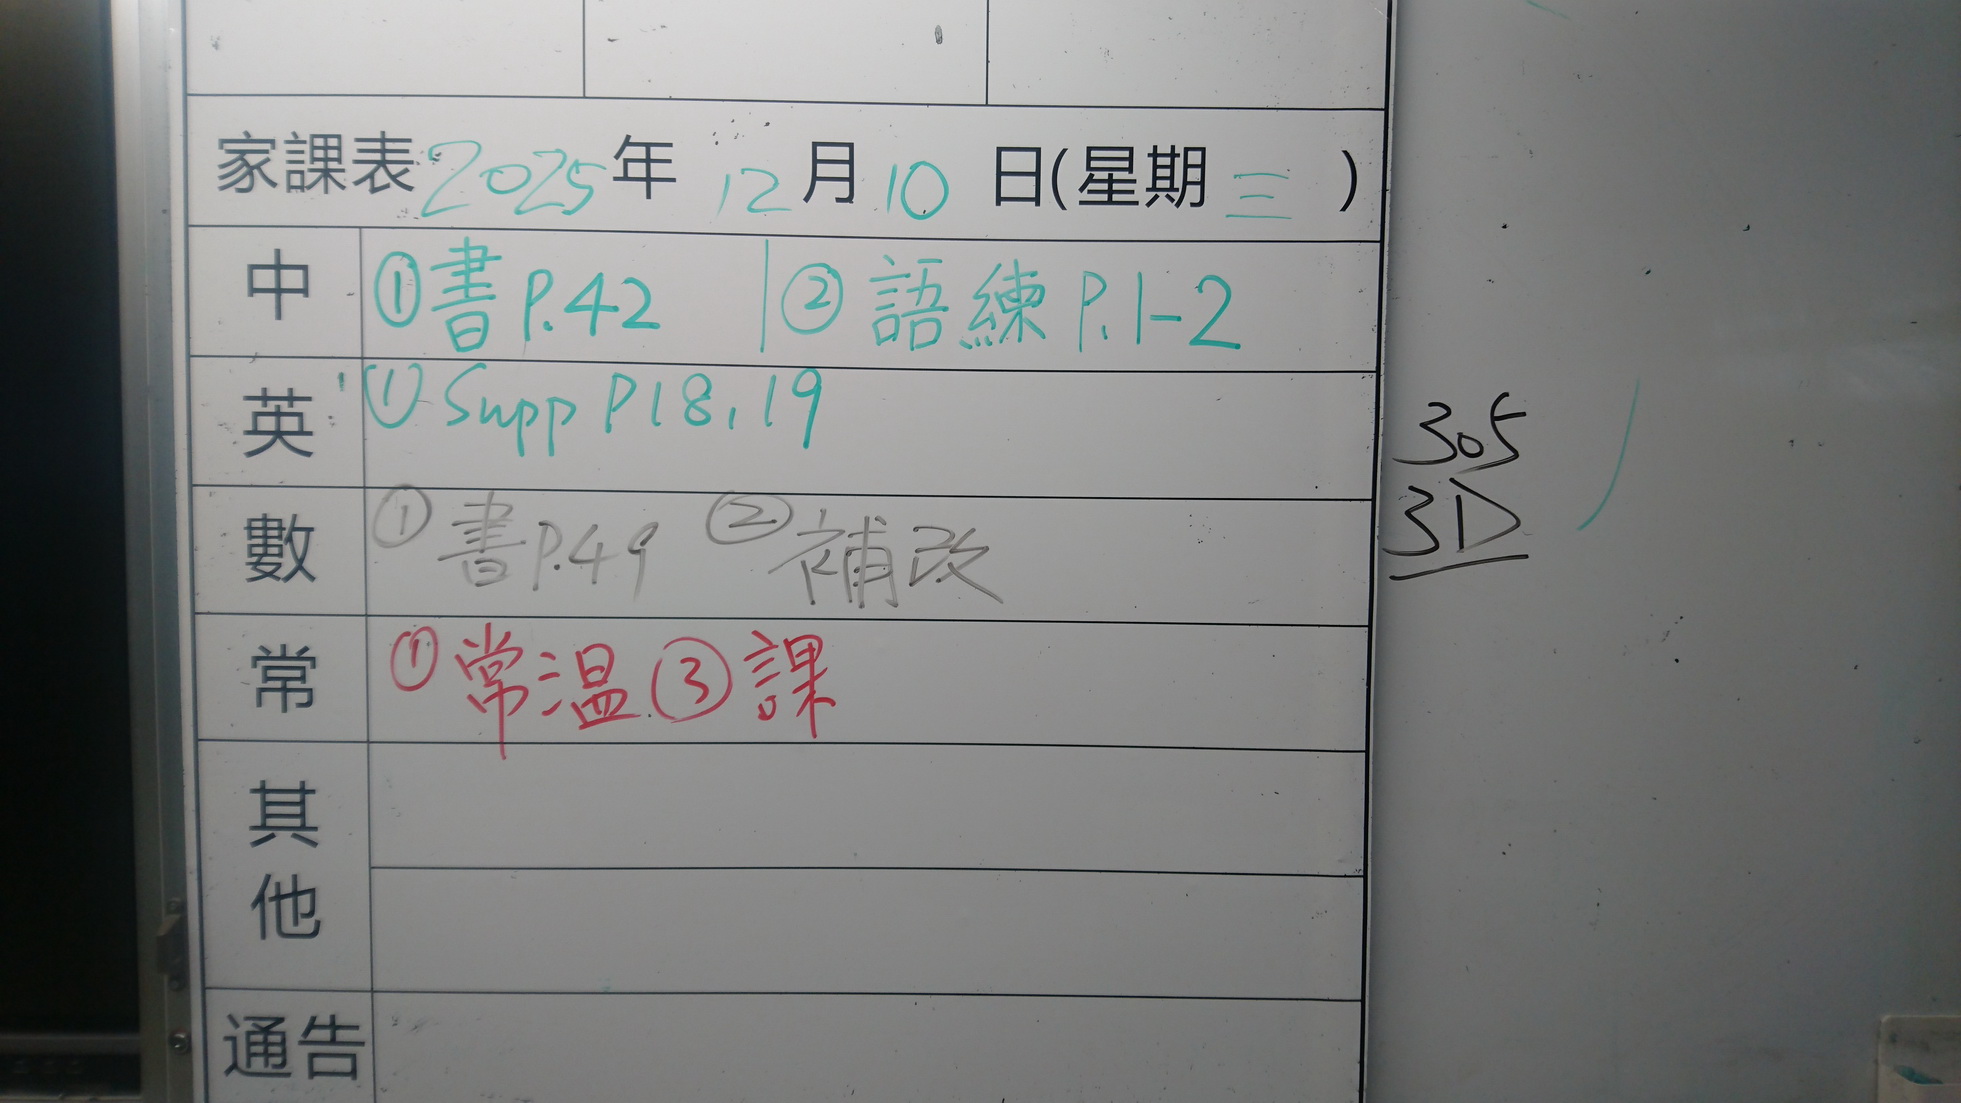 家課表 2025年 12月10日(星期三)
中 ①書P.42 | ②語練P.1-2
英 ①Supp P18,19
數 ①書P.49 ②補改
常 ①常温③課
其他
通告
305
3D